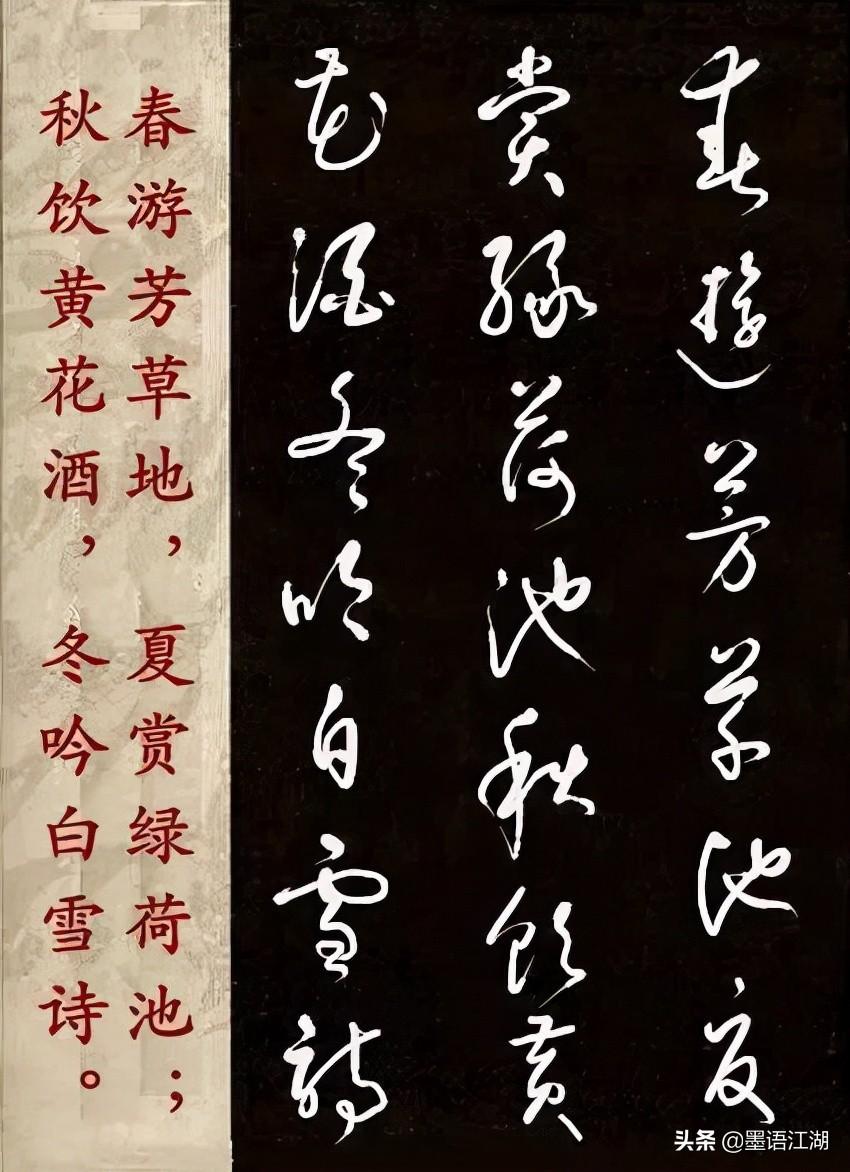 春遊芳草地夏
賞綠荷池秋飲黃
花酒冬吟白雪詩
春游芳草地，夏赏绿荷池；
秋饮黄花酒，冬吟白雪诗。
头条 @墨语江湖